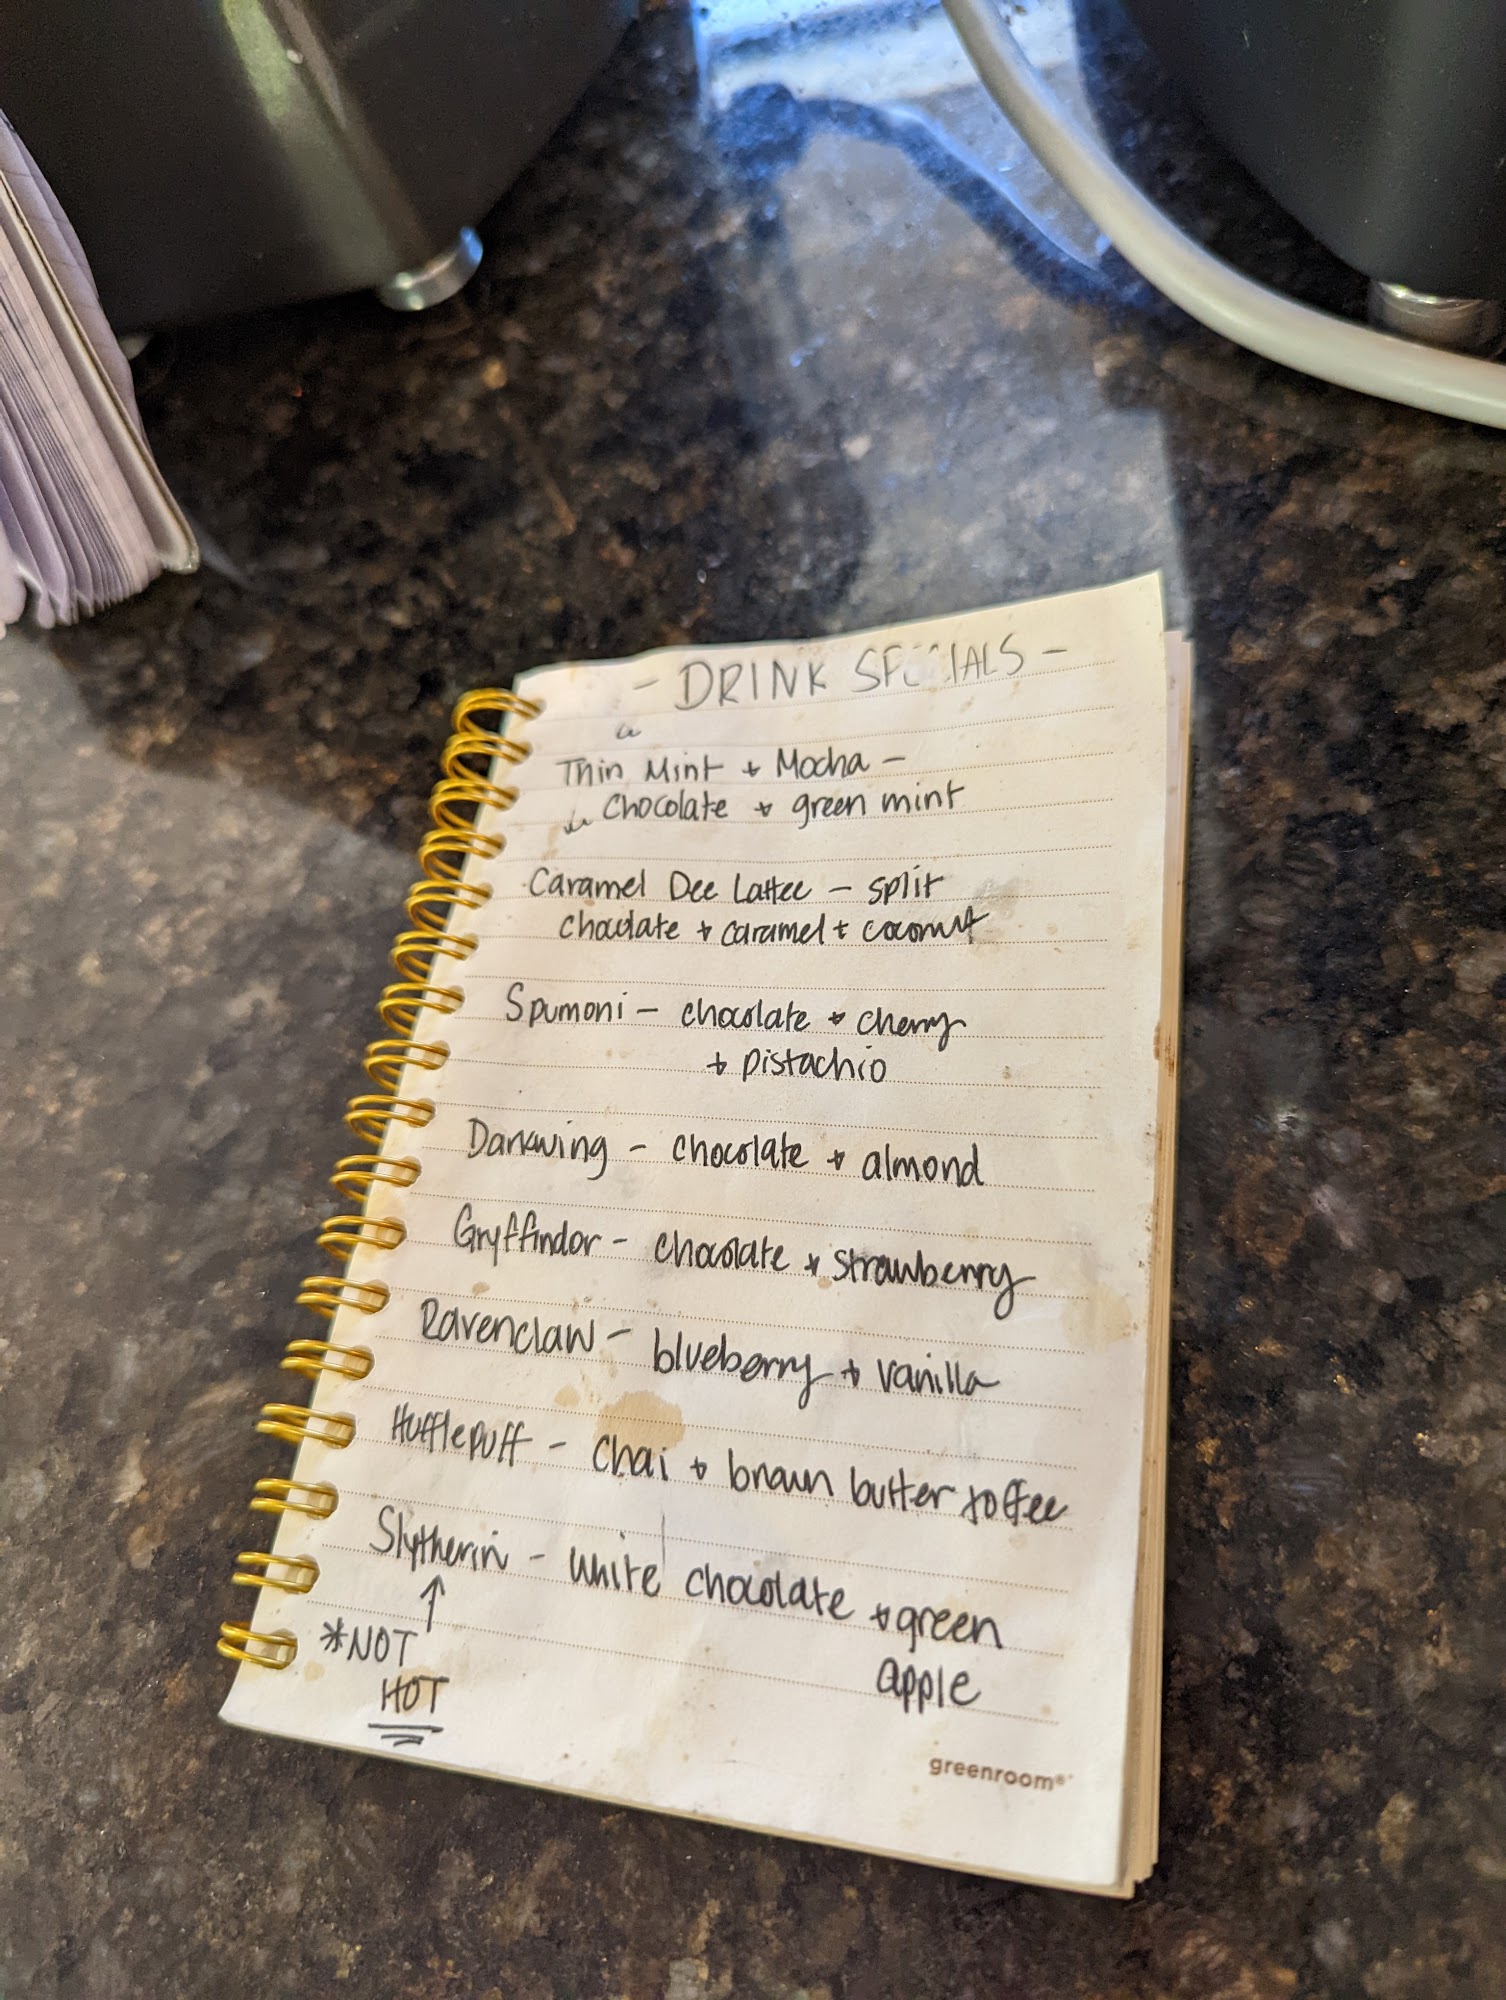 - DRINK SPECIALS -
Thin Mint + Mocha -
Chocolate + green mint
Caramel Dee Lattee - split
chocolate + caramel + coconut
Spumoni - chocolate + cherry
+ pistachio
Darkwing - chocolate + almond
Gryffindor - chocolate + strawberry
Ravenclaw - blueberry + vanilla
Hufflepuff - chai + brown butter toffee
Slytherin - white chocolate + green
apple
↑
*NOT
HOT
greenroom®